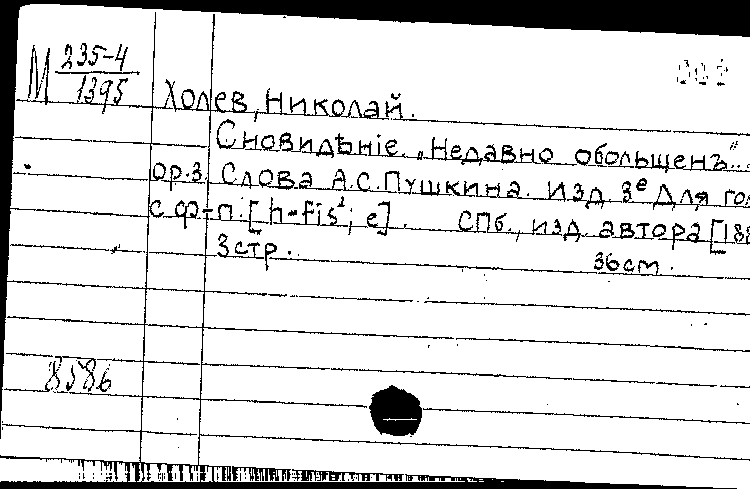 М 235-4
1395
Холев, Николай.
Сновидѣніе. „Недавно обольщенъ"...
ор.3. Слова А.С.Пушкина. Изд. 3е Для гол
с ф-п. [h-fis²; e]. СПб., изд. автора [188
3стр. 36см.
8586